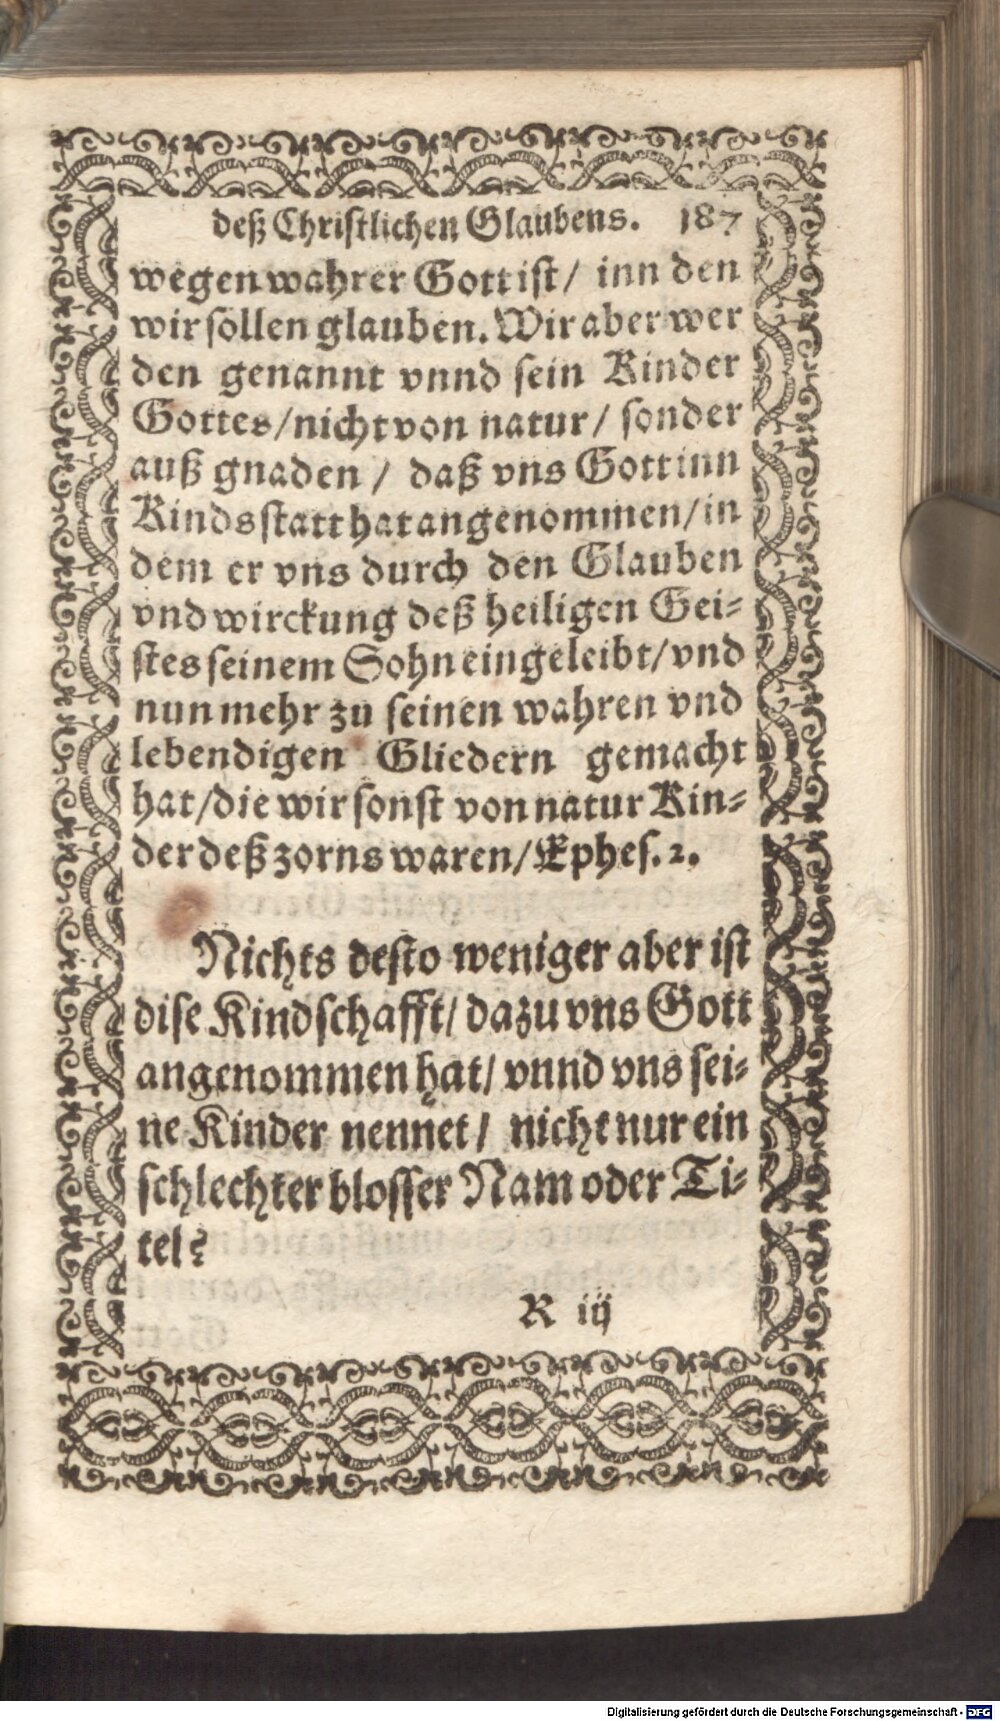 deß Christlichen Glaubens. 187
wegen wahrer Gott ist/ inn den
wir sollen glauben. Wir aber wer
den genannt vnnd sein Kinder
Gottes/nicht von natur/ sonder
auß gnaden / daß vns Gott inn
Kinds statt hat angenommen/in
dem er vns durch den Glauben
vnd wirckung deß heiligen Gei-
stes seinem Sohn eingeleibt/vnd
nun mehr zu seinen wahren vnd
lebendigen Gliedern gemacht
hat/die wir sonst von natur Kin-
der deß zorns waren/Ephes. 2.
Nichts desto weniger aber ist
dise Kindschafft/dazu vns Gott
angenommen hat/ vnnd vns sei-
ne Kinder nennet/ nicht nur ein
schlechter blosser Nam oder Ti-
tel?
R iij
Digitalisierung gefördert durch die Deutsche Forschungsgemeinschaft - DFG